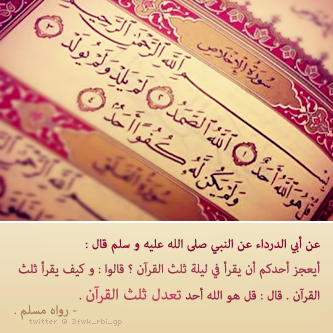 سورة الإخلاص
بسم الله الرحمن الرحيم
قل هو الله أحد ١ الله الصمد ٢ لم يلد ولم يولد ٣
ولم يكن له كفوا أحد ٤
سورة الفلق
بسم الله الرحمن الرحيم
عن أبي الدرداء عن النبي صلى الله عليه و سلم قال :
أيعجز أحدكم أن يقرأ في ليلة ثلث القرآن ؟ قالوا : و كيف يقرأ ثلث
القرآن . قال : قل هو الله أحد تعدل ثلث القرآن .
- رواه مسلم .
twitter @ 3fwk_rbi_gp